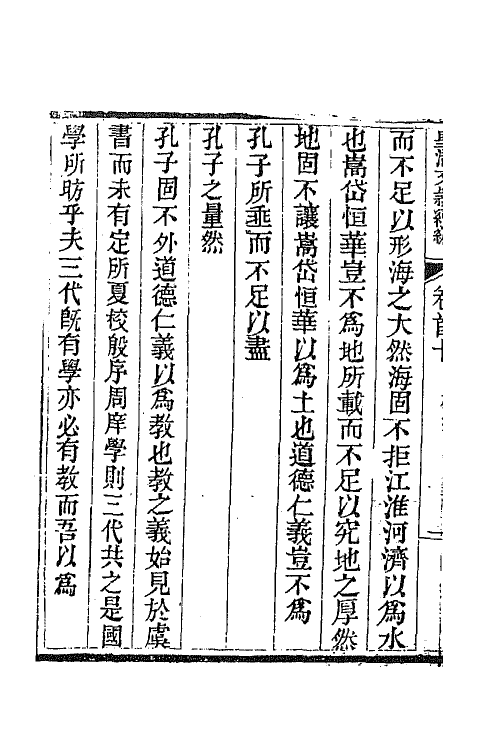 而不足以形海之大然海固不拒江淮河濟以爲水
也嵩岱恒華豈不爲地所載而不足以究地之厚然
地固不讓嵩岱恒華以爲土也道德仁義豈不爲
孔子所垂而不足以盡
孔子之量然
孔子固不外道德仁義以爲教也教之義始見於虞
書而未有定所夏校殷序周庠學則三代共之是國
學所昉乎夫三代旣有學亦必有教而吾以爲